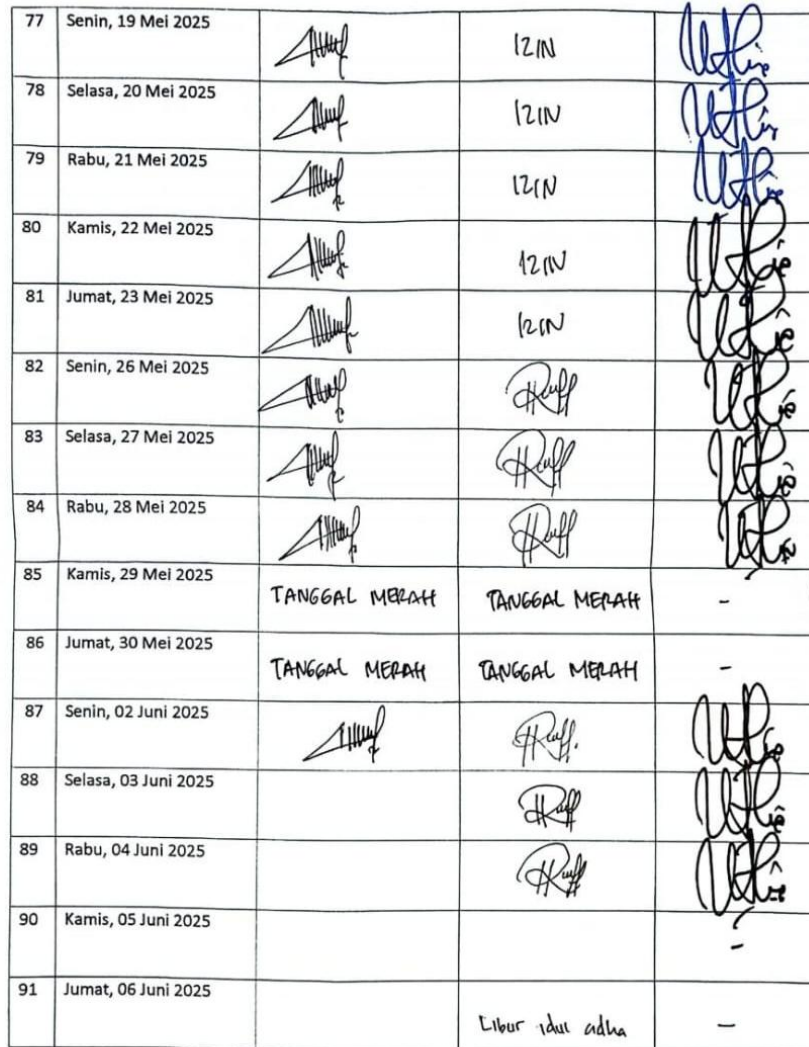 77 Senin, 19 Mei 2025 IZIN
78 Selasa, 20 Mei 2025 IZIN
79 Rabu, 21 Mei 2025 IZIN
80 Kamis, 22 Mei 2025 IZIN
81 Jumat, 23 Mei 2025 IZIN
82 Senin, 26 Mei 2025
83 Selasa, 27 Mei 2025
84 Rabu, 28 Mei 2025
85 Kamis, 29 Mei 2025 TANGGAL MERAH TANGGAL MERAH -
86 Jumat, 30 Mei 2025 TANGGAL MERAH TANGGAL MERAH -
87 Senin, 02 Juni 2025
88 Selasa, 03 Juni 2025
89 Rabu, 04 Juni 2025
90 Kamis, 05 Juni 2025 -
91 Jumat, 06 Juni 2025 Libur idul adha -